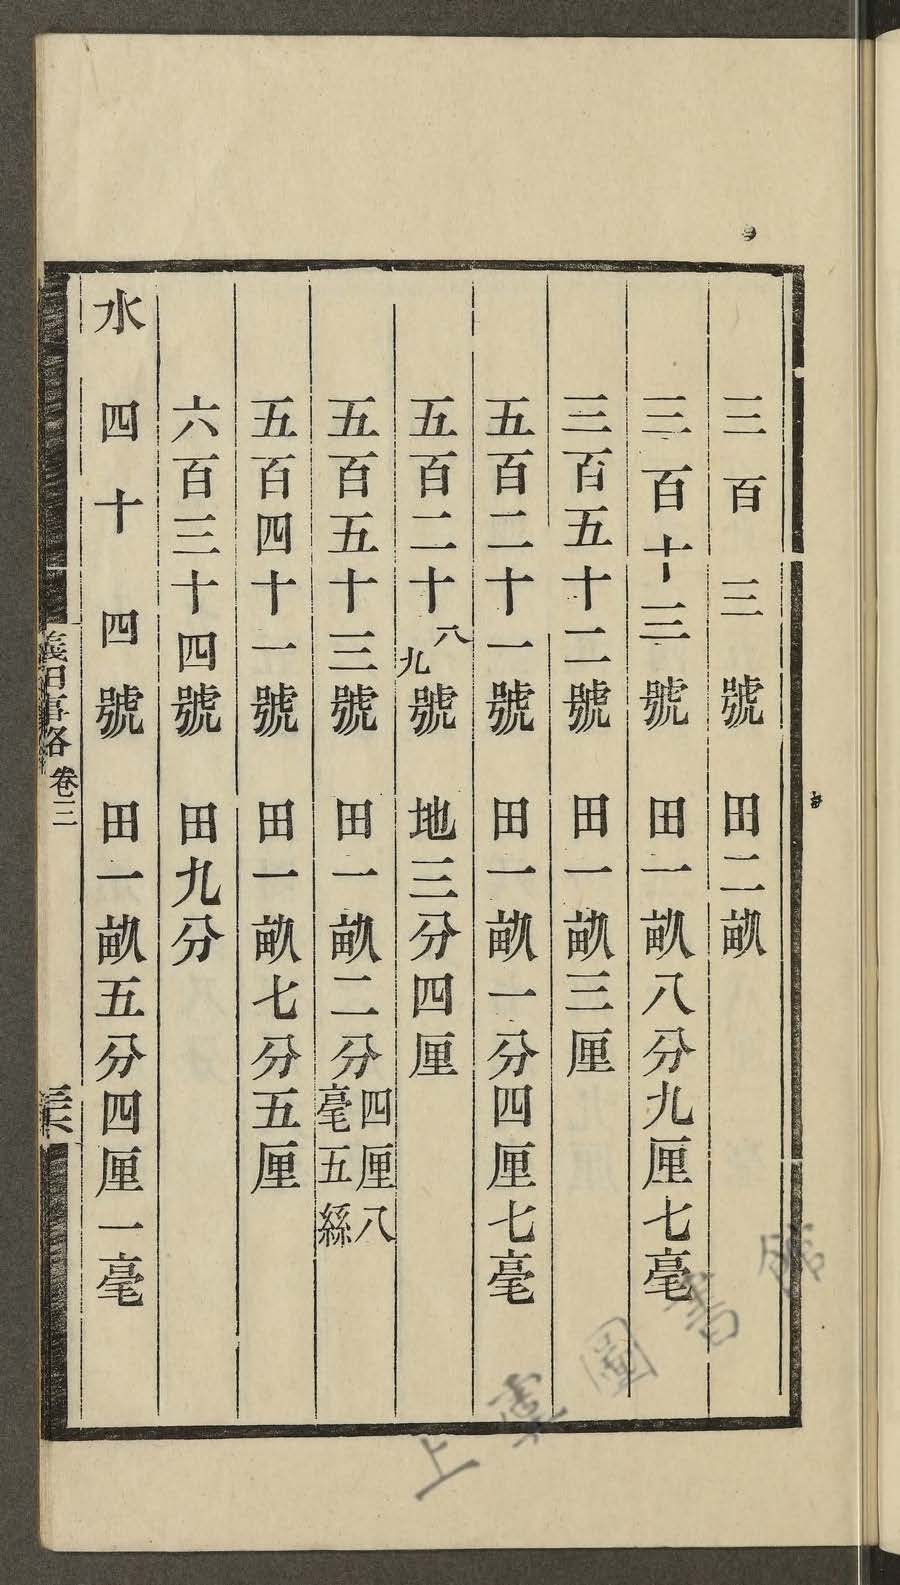 三百三號　田二畝
三百十三號　田一畝八分九厘七毫
三百五十二號　田一畝三厘
五百二十一號　田一畝一分四厘七毫
五百二十八九號　地三分四厘
五百五十三號　田一畝二分四厘八毫五絲
五百四十一號　田一畝七分五厘
六百三十四號　田九分
水四十四號　田一畝五分四厘一毫
義田事略　卷三
上虞圖書館